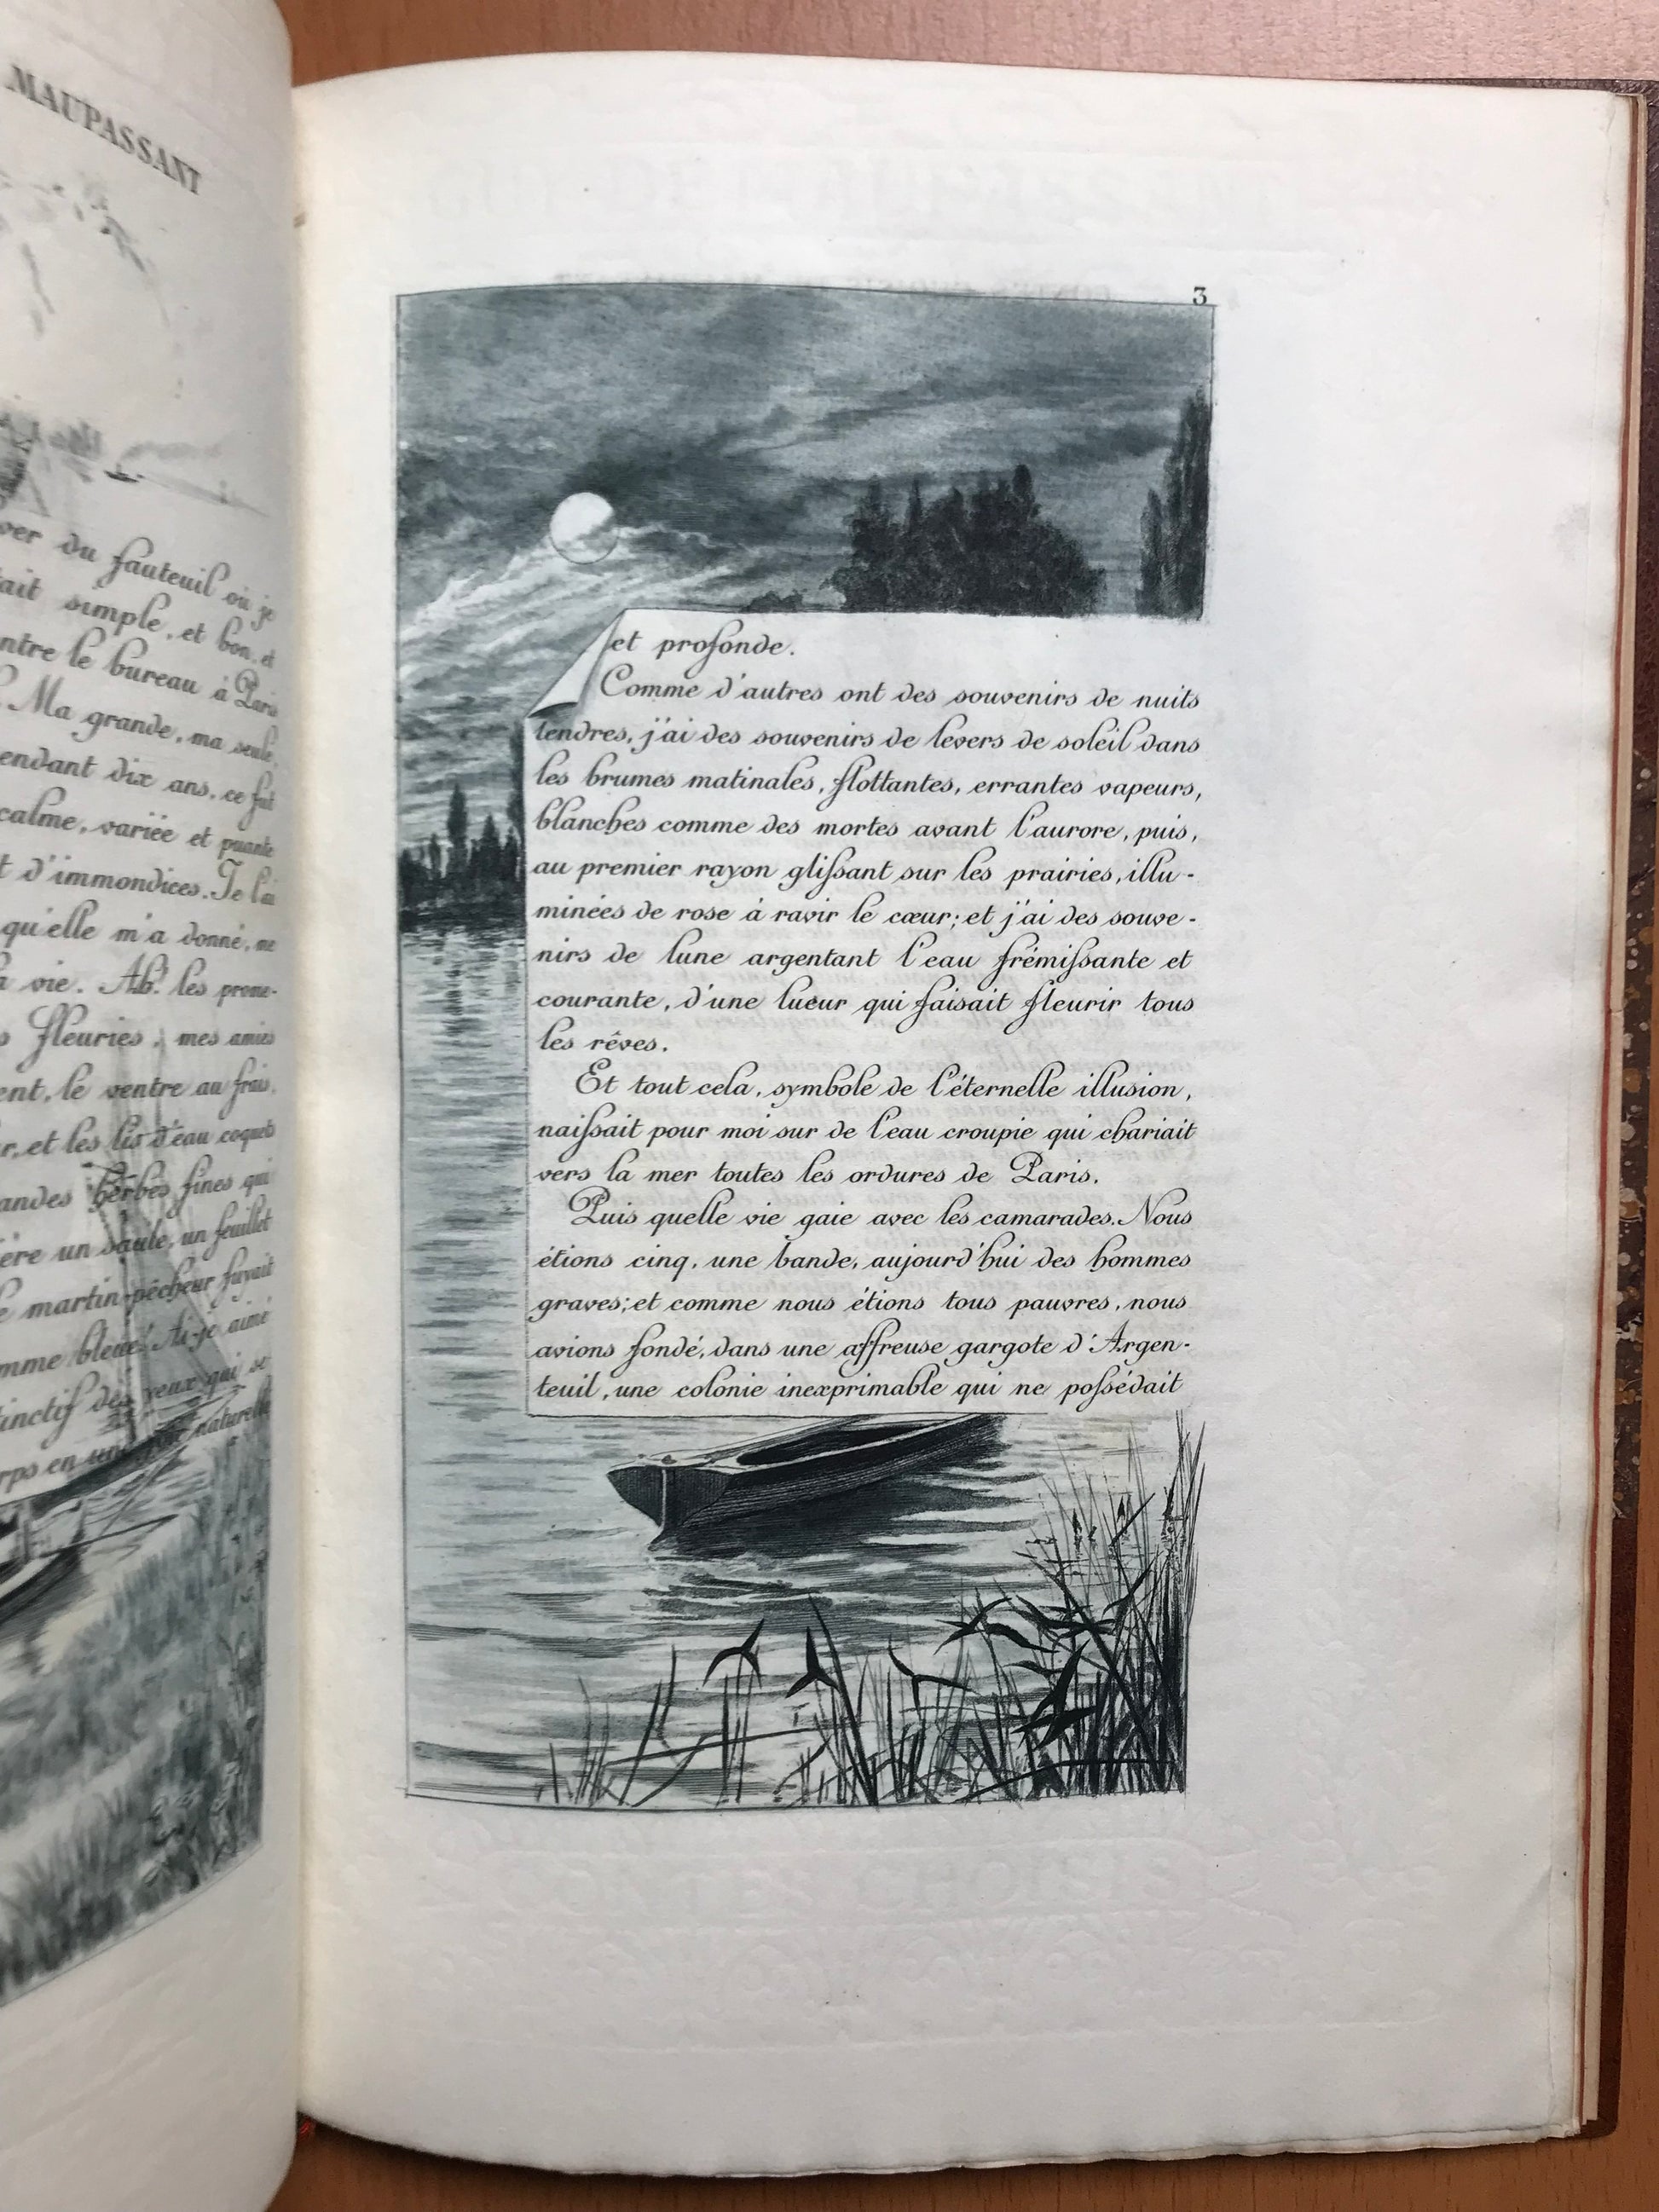 MAUPASSANT
du fauteuil où je
simple, et bon, et
le bureau à Paris
Ma grande, ma seule,
dix ans, ce fut
calme, variée et puante
d'immondices. Je l'ai
qu'elle m'a donné, me
vie. Ah! les prome-
fleuries, mes amies
le ventre au frais,
et les lis d'eau coquets
herbes fines qui
un saule, un feuillet
martin-pêcheur fuyait
bleue! Ai-je aimé
des yeux qui se
en naturelle
3
et profonde.
Comme d'autres ont des souvenirs de nuits
tendres, j'ai des souvenirs de levers de soleil dans
les brumes matinales, flottantes, errantes vapeurs,
blanches comme des mortes avant l'aurore, puis,
au premier rayon glissant sur les prairies, illu-
minées de rose à ravir le cœur; et j'ai des souve-
nirs de lune argentant l'eau frémissante et
courante, d'une lueur qui faisait fleurir tous
les rêves.
Et tout cela, symbole de l'éternelle illusion,
naissait pour moi sur de l'eau croupie qui chariait
vers la mer toutes les ordures de Paris.
Puis quelle vie gaie avec les camarades. Nous
étions cinq, une bande, aujourd'hui des hommes
graves; et comme nous étions tous pauvres, nous
avions fondé, dans une affreuse gargote d'Argen-
teuil, une colonie inexprimable qui ne possédait